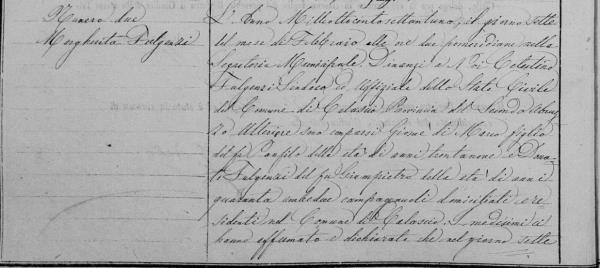 Numero due
Margherita Fulgenzi
L'Anno Milleottocentosettantuno, il giorno sette
del mese di Febbraio alle ore due pomeridiane nella
Segreteria Municipale. Dinanzi a Noi Celestino
Fulgenzi Sindaco ed Uffiziale dello Stato Civile
del Comune di Calascio Provincia del Secondo Abruz
zo Ulteriore sono comparsi Giosuè di Marco figlio
del fu Panfilo della età di anni trentanove e Dona
to Fulgenzi del fu Giampietro della età di anni
quaranta ambedue campagnuoli domiciliati e re
sidenti nel Comune di Calascio. I medesimi ci
hanno affirmato e dichiarato che nel giorno sette